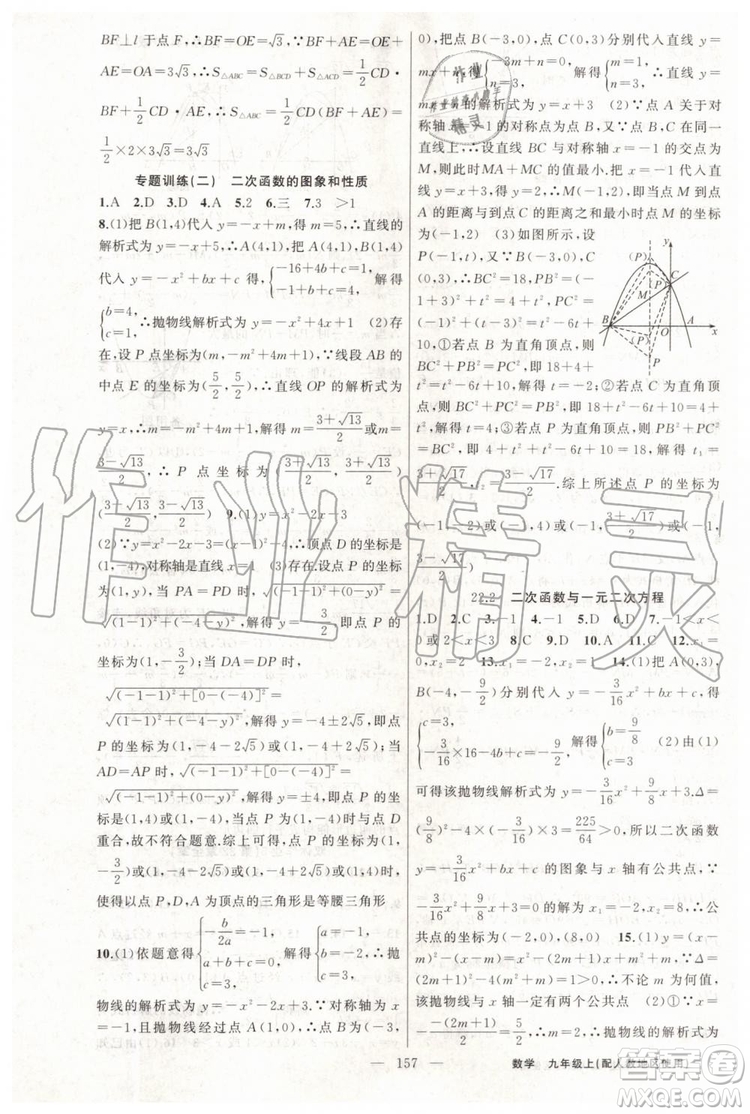 BF⊥l于点F,∴CD=BF+AE,又∵∠AOE=60°,∴
AE=OA=3√3,∴S△ABC=S△BCD+S△ACD=1/2 CD·
BF+1/2 CD·AE,∴S△ABC=1/2 CD·(BF+AE)=
1/2×2×3√3=3√3
专题训练(二) 二次函数的图象和性质
1.A 2.D 3.D 4.A 5.2 6.三 7.3 >1
8.(1)把B(1,4)代入y=-x+m,得m=5,∴直线的
解析式为y=-x+5,∴A(4,1),把A(4,1),B(1,4)
代入y=-x²+bx+c得,{-16+4b+c=1, -1+b+c=4, 解得
{b=4, c=1,∴抛物线解析式为y=-x²+4x+1 (2)存
在,设P点坐标为(m,-m²+4m+1),∵线段AB的
中点E的坐标为(5/2,5/2),∴直线OP的解析式为
y=x,∴m=-m²+4m+1,解得m=(3+√13)/2或m=
(3-√13)/2,∴P点坐标为((3+√13)/2,(3+√13)/2)或
((3-√13)/2,(3-√13)/2) 9.(1)y=x²-2x-3
(2)∵y=x²-2x-3=(x-1)²-4,∴顶点D的坐标是
(1,-4),对称轴是直线x=1 (3)存在.设点P的坐标
为(1,y),当PA=PD时,√((-1-1)²+(0-y)²)=
√((1-1)²+(-4-y)²),解得y=-3/2,即点P的
坐标为(1,-3/2);当DA=DP时,
√((-1-1)²+[0-(-4)]²)=
√((1-1)²+(-4-y)²),解得y=-4±2√5,即点
P的坐标为(1,-4-2√5)或(1,-4+2√5);当
AD=AP时,√((-1-1)²+[0-(-4)]²)=
√((-1-1)²+(0-y)²),解得y=±4,即点P的坐标
是(1,4)或(1,-4),当点P为(1,-4)时与点D
重合,故不符合题意.综上可得,点P的坐标为(1,-
3/2)或(1,-4-2√5)或(1,-4+2√5)或(1,4)时,
使得以点P,D,A为顶点的三角形是等腰三角形
10.(1)依题意得{-b/2a=-1, a+b+c=0, c=3, 解得{a=-1, b=-2, c=3,∴抛
物线的解析式为y=-x²-2x+3.∵对称轴为x=
-1,且抛物线经过点A(1,0),∴点B(-3,
0),把点B(-3,0),C(0,3)分别代入直线y=
mx+n,得{-3m+n=0, n=3, 解得{m=1, n=3,∴直线y=
mx+n的解析式为y=x+3 (2)∵点A关于对
称轴x=-1的对称点为点B,∴
直线BC与对称轴x=-1的交点为
M,此时MA+MC的值最小,即点M到点
A的距离与到点C的距离之和最小时点M的坐标
为(-1,2) (3)如图所示,设
P(-1,t),又∵B(-3,0),
C(0,3),∴BC²=18,PB²=(-1
+3)²+t²=4+t²,PC²=(-
1)²+(t-3)²=t²-6t+10,
①若点B为直角顶点,则
BC²+PB²=PC²,即18+4+
t²=t²-6t+10,解得t=-2;②若点C为直角顶
点,则BC²+PC²=PB²,即18+t²-6t+10=4+
t²,解得t=4;③若点P为直角顶点,则PB²+PC²=
BC²,即4+t²+t²-6t+10=18,解得t₁=
(3+√17)/2,t₂=(3-√17)/2.综上所述点P的坐标为
(-1,-2)或(-1,4)或(-1,(3+√17)/2)或(-1,
(3-√17)/2)
(P) y P C M B O A x (P) P
22.2 二次函数与一元二次方程
1.D 2.C 3.-1 4.-1 5.D 6.D 7.x<
0或2<x<3 8.C 9.D 10.A 11.C 12.x₁=
0,x₂=2 13.-2 14.(1)把A(0,3),
B(-4,-9/2)分别代入y=-3/16 x²+bx+c,得
{c=3, -3/16×16-4b+c=-9/2, 解得{b=9/8, c=3 (2)由(1)
可得该抛物线解析式为y=-3/16 x²+9/8 x+3,Δ=
(9/8)²-4×(-3/16)×3=225/64>0,所以二次函数
y=-3/16 x²+bx+c的图象与x轴有公共点,∵
-3/16 x²+9/8 x+3=0的解为x₁=-2,x₂=8,∴公
共点的坐标为(-2,0),(8,0) 15.(1)∵y=(x-
m)²-(x-m)=x²-(2m+1)x+m²+m,∴Δ=
(2m+1)²-4(m²+m)=1>0,∴不论m为何值,
该抛物线与x轴一定有两个公共点 (2)①∵x=
-(-(2m+1))/2=5/2,∴m=2,∴抛物线的解析式为
157 数学 九年级上(配人教地区使用)
作业精灵